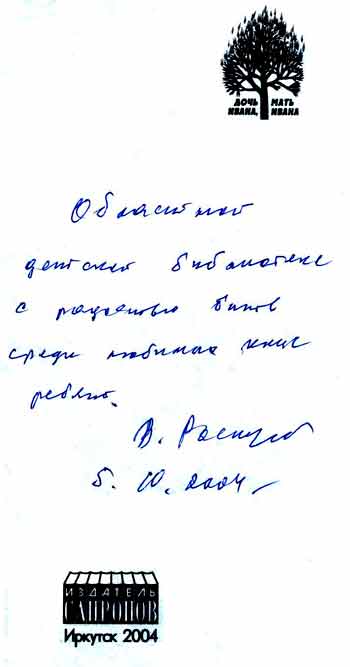 ДОЧЬ МАТЬ
ИВАНА, ИВАНА
Областной
детской библиотеке
с радостью быть
среди любимых книг
ребят.
В. Распутин
5. 10. 2004
ИЗДАТЕЛЬ
САПРОНОВ
Иркутск 2004